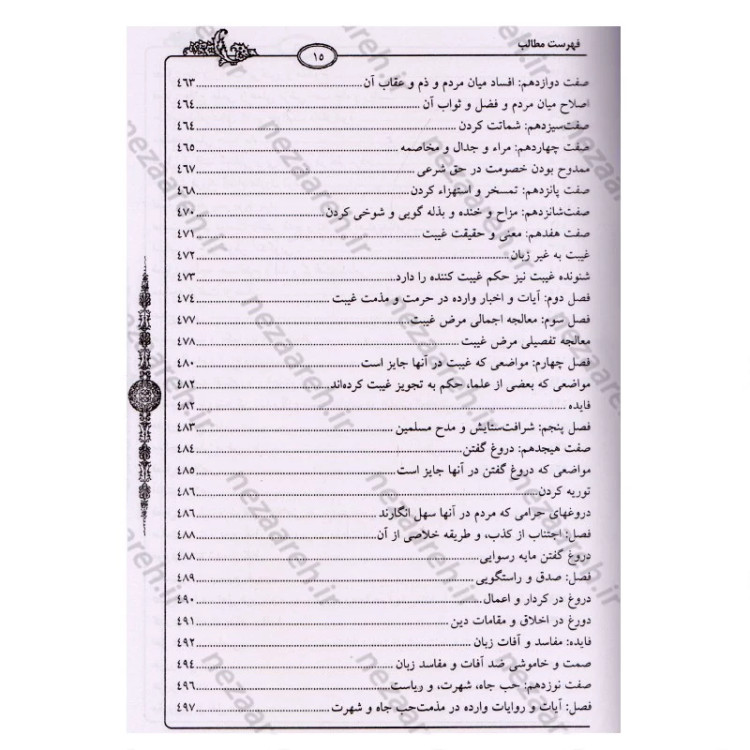 فهرست مطالب
١٥
صفت دوازدهم: افساد میان مردم و ذم و عقاب آن ٤٦٣
اصلاح میان مردم و فضل و ثواب آن ٤٦٤
صفت‌سیزدهم: شماتت کردن ٤٦٤
صفت چهاردهم: مراء و جدال و مخاصمه ٤٦٥
ممدوح بودن خصومت در حق شرعی ٤٦٧
صفت پانزدهم: تمسخر و استهزاء کردن ٤٦٨
صفت‌شانزدهم: مزاح و خنده و بذله گویی و شوخی کردن ٤٧٠
صفت هفدهم: معنی و حقیقت غیبت ٤٧١
غیبت به غیر زبان ٤٧٢
شنونده غیبت نیز حکم غیبت کننده را دارد ٤٧٣
فصل دوم: آیات و اخبار وارده در حرمت و مذمت غیبت ٤٧٤
فصل سوم: معالجه اجمالی مرض غیبت ٤٧٧
معالجه تفصیلی مرض غیبت ٤٧٨
فصل چهارم: مواضعی که غیبت در آنها جایز است ٤٨٠
مواضعی که بعضی از علما، حکم به تجویز غیبت کرده‌اند ٤٨٢
فایده ٤٨٢
فصل پنجم: شرافت‌ستایش و مدح مسلمین ٤٨٣
صفت هیجدهم: دروغ گفتن ٤٨٤
مواضعی که دروغ گفتن در آنها جایز است ٤٨٥
توریه کردن ٤٨٦
دروغهای حرامی که مردم در آنها سهل انگارند ٤٨٦
فصل: اجتناب از کذب، و طریقه خلاصی از آن ٤٨٨
دروغ گفتن مایه رسوایی ٤٨٨
فصل: صدق و راستگویی ٤٨٩
دروغ در کردار و اعمال ٤٩٠
دورغ در اخلاق و مقامات دین ٤٩١
فایده: مفاسد و آفات زبان ٤٩٢
صمت و خاموشی ضد آفات و مفاسد زبان ٤٩٤
صفت نوزدهم: حب جاه، شهرت، و ریاست ٤٩٦
فصل: آیات و روایات وارده در مذمت‌حب جاه و شهرت ٤٩٧
nezaareh.ir